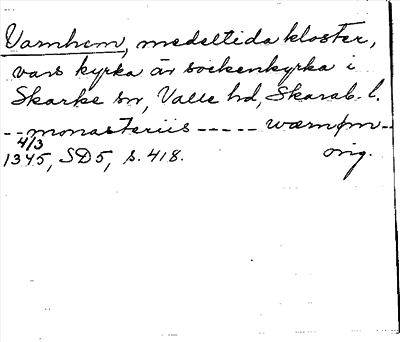 Varnhem, medeltida kloster,
vars kyrka är sockenkyrka i
Skarke sn, Valle hd, Skarab. l.
-- monasteriis ----- wærnom --
4/3
1345, SD5, s. 418. orig.